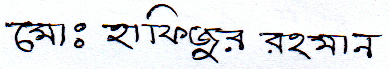 মোঃ হাফিজুর রহমান